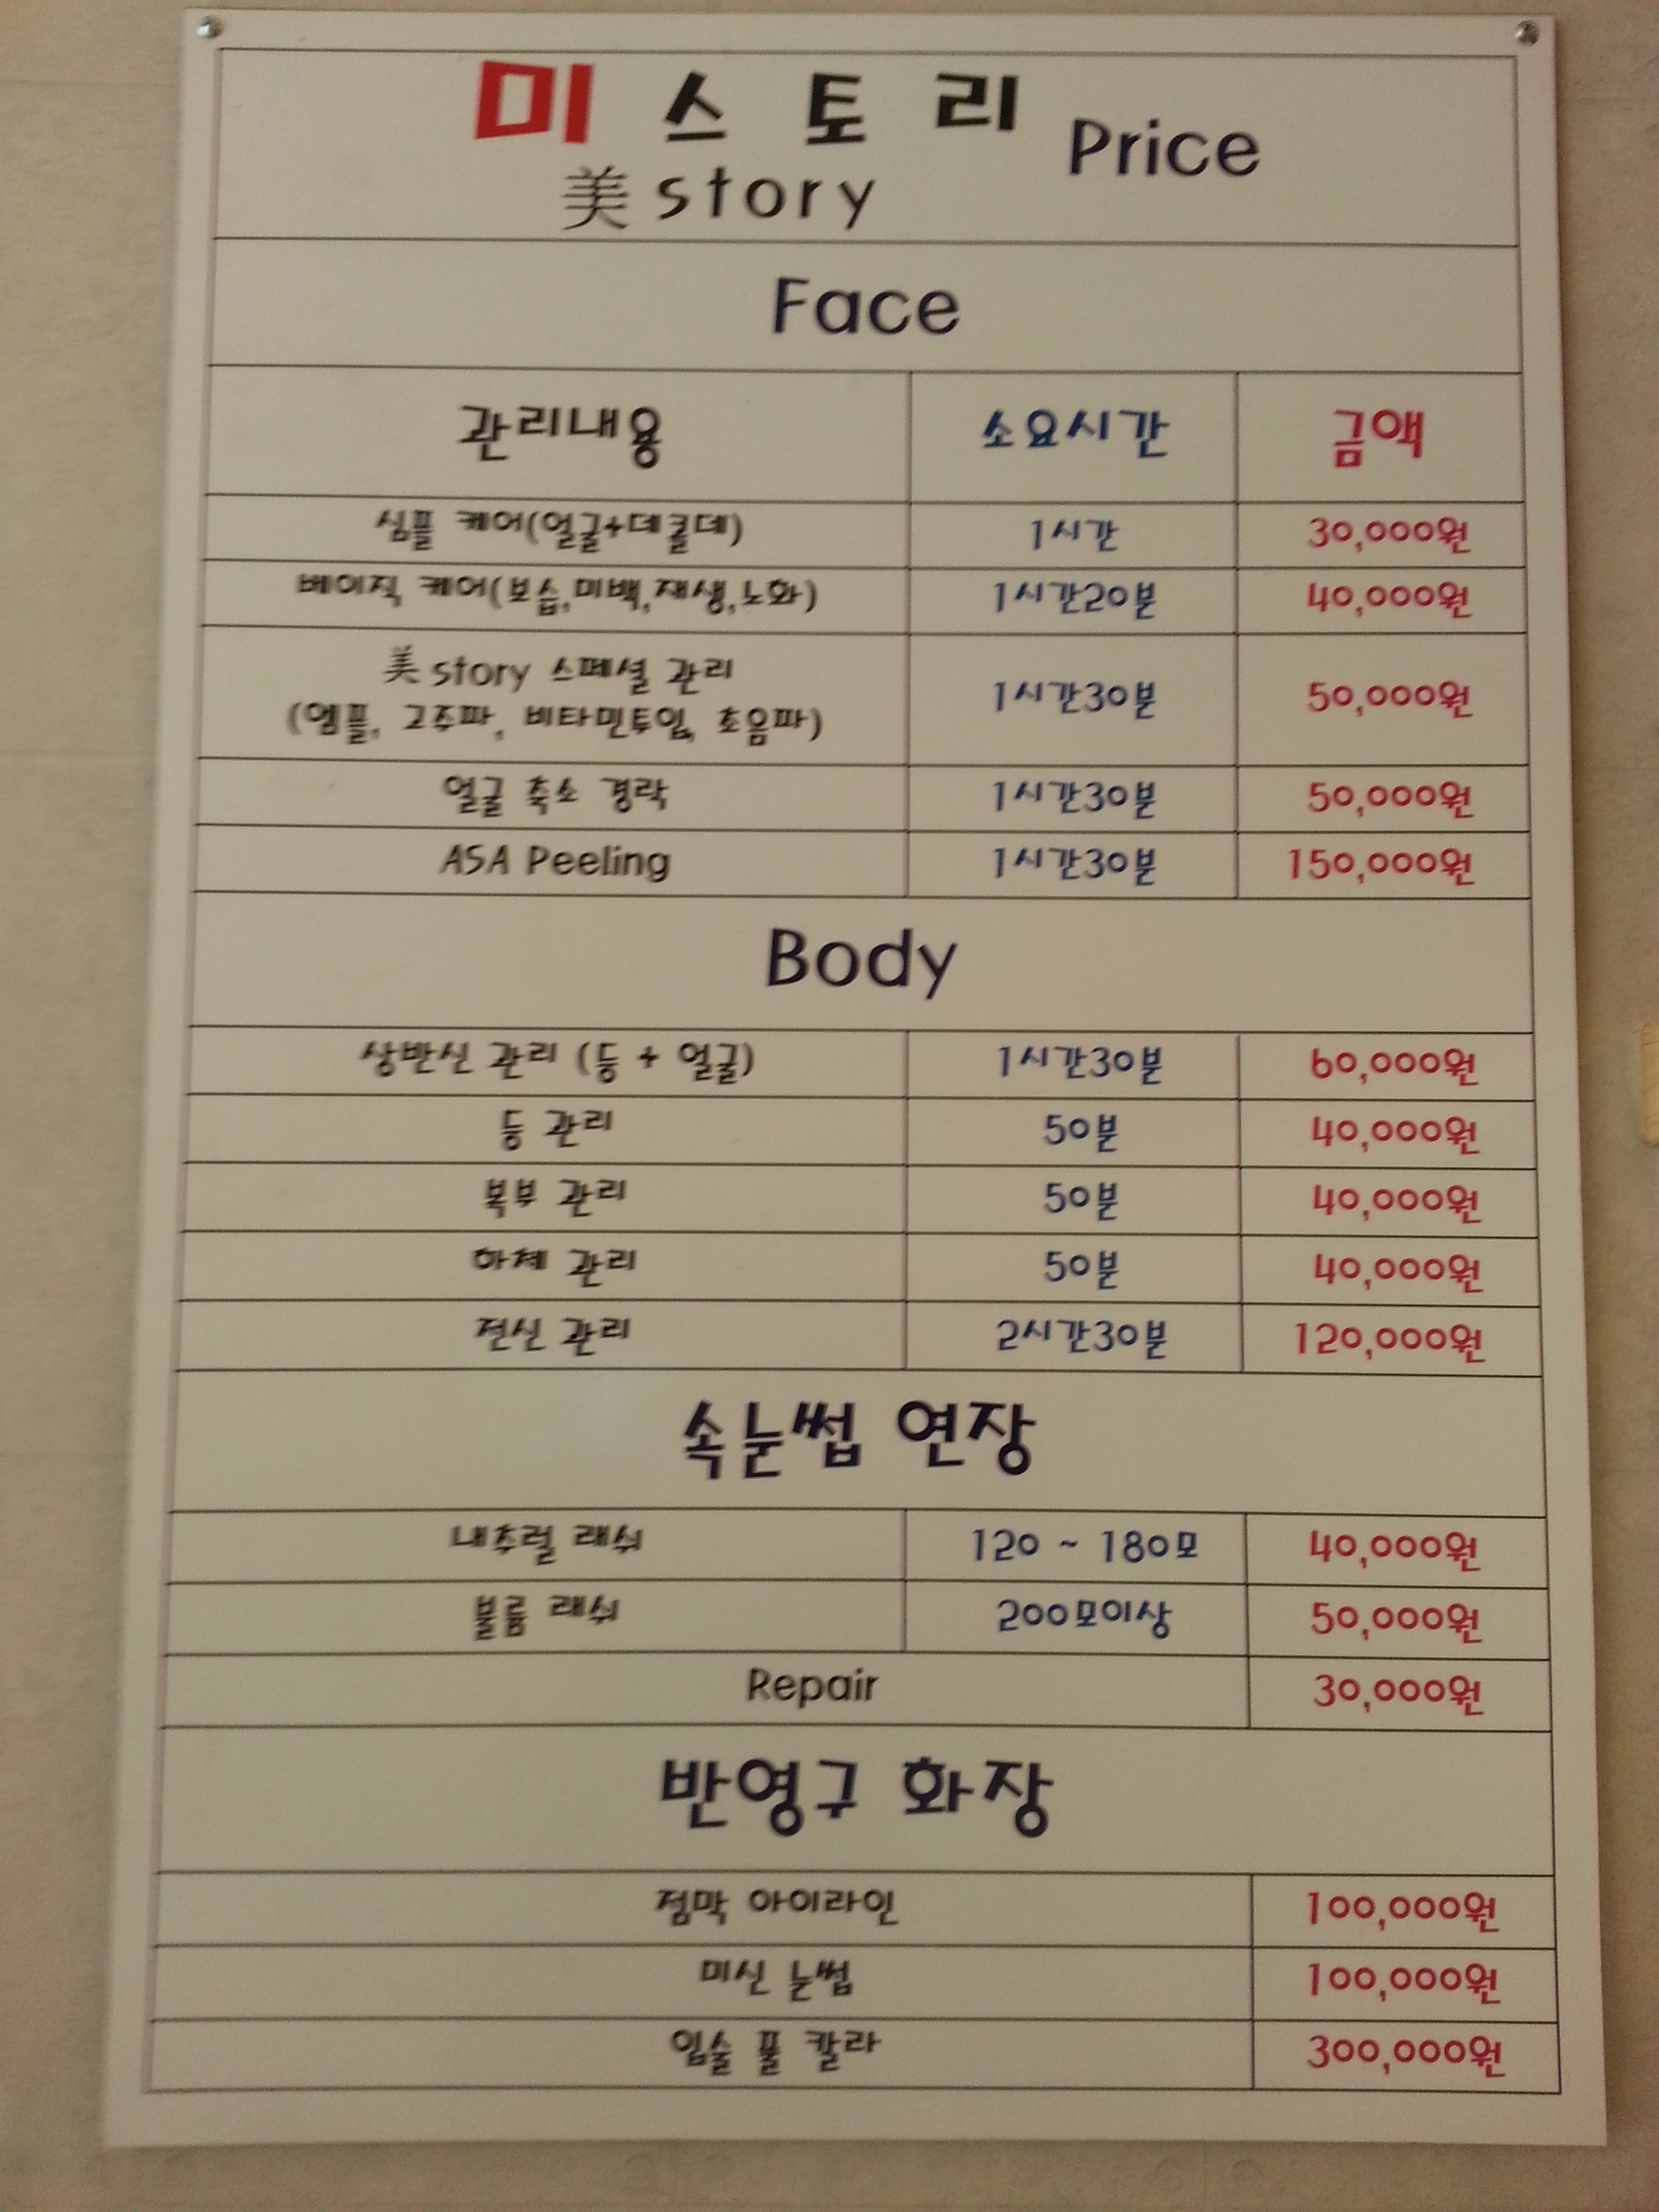 미스토리 Price
美 story
Face
관리내용 소요시간 금액
심플 케어(얼굴+데콜데) 1시간 30,000원
베이직 케어(보습,미백,재생,노화) 1시간20분 40,000원
美 story 스페셜 관리
(앰플, 고주파, 비타민투입, 초음파) 1시간30분 50,000원
얼굴 축소 경락 1시간30분 50,000원
ASA Peeling 1시간30분 150,000원
Body
상반신 관리 (등 + 얼굴) 1시간30분 60,000원
등 관리 50분 40,000원
복부 관리 50분 40,000원
하체 관리 50분 40,000원
전신 관리 2시간30분 120,000원
속눈썹 연장
내추럴 래쉬 120 ~ 180모 40,000원
볼륨 래쉬 200모이상 50,000원
Repair 30,000원
반영구 화장
점막 아이라인 100,000원
미신 눈썹 100,000원
입술 풀 칼라 300,000원